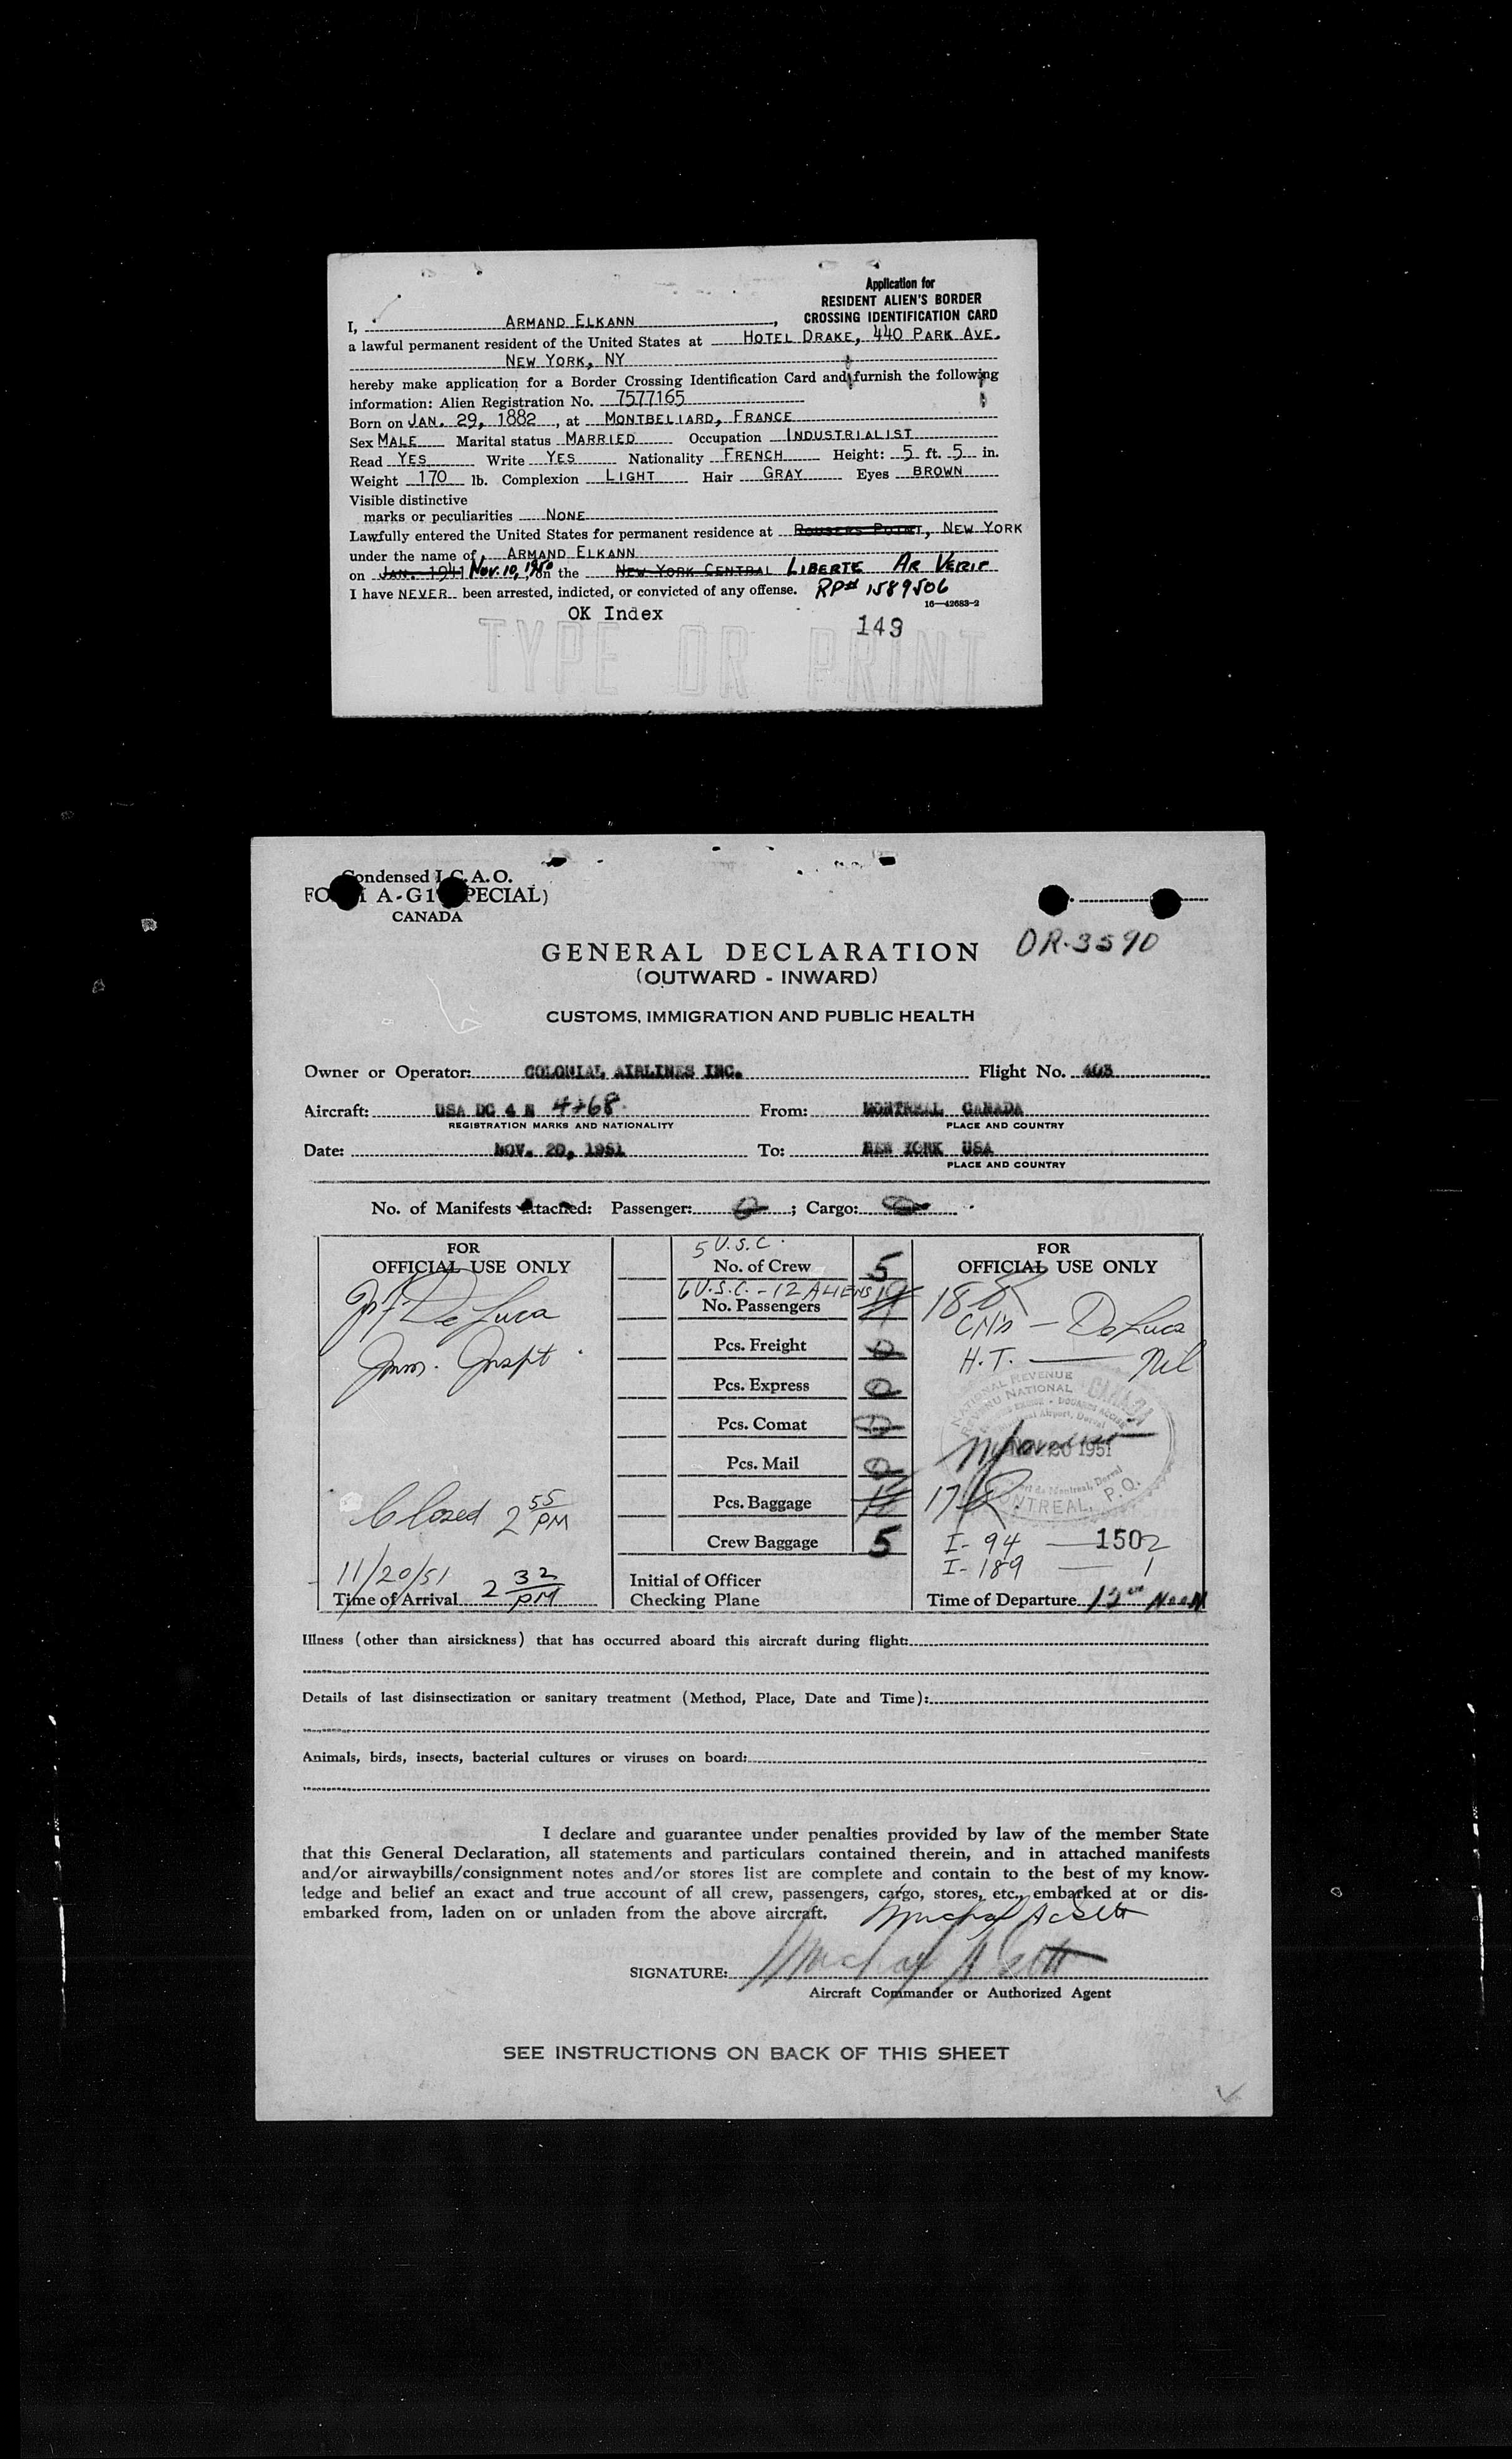 Application for
RESIDENT ALIEN'S BORDER
CROSSING IDENTIFICATION CARD
I, ARMAND ELKANN,
a lawful permanent resident of the United States at HOTEL DRAKE, 440 PARK AVE.
NEW YORK, NY
hereby make application for a Border Crossing Identification Card and furnish the following
information: Alien Registration No. 7577165
Born on JAN. 29, 1882, at MONTBELIARD, FRANCE
Sex MALE Marital status MARRIED Occupation INDUSTRIALIST
Read YES Write YES Nationality FRENCH Height: 5 ft. 5 in.
Weight 170 lb. Complexion LIGHT Hair GRAY Eyes BROWN
Visible distinctive
marks or peculiarities NONE
Lawfully entered the United States for permanent residence at ROUSERS POINT, NEW YORK
under the name of ARMAND ELKANN
on JAN. 1941 NOV. 10, 1950, on the NEW YORK CENTRAL LIBERTE AR VERIF
I have NEVER been arrested, indicted, or convicted of any offense. RP# 1589506
16—42683-2
OK Index
149
TYPE OR PRINT
Condensed I.C.A.O.
FORM A-G1 (SPECIAL)
CANADA
DR-3590
GENERAL DECLARATION
(OUTWARD - INWARD)
CUSTOMS, IMMIGRATION AND PUBLIC HEALTH
Owner or Operator: COLONIAL AIRLINES INC. Flight No. 403
Aircraft: USA DC 4 N 4768 From: MONTREAL CANADA
REGISTRATION MARKS AND NATIONALITY PLACE AND COUNTRY
Date: NOV. 20, 1951 To: NEW YORK USA
PLACE AND COUNTRY
No. of Manifests attached: Passenger: 0; Cargo: 0
FOR
OFFICIAL USE ONLY
De Luca
Imm. Inspt.
Closed 2 55 PM
11/20/51
Time of Arrival 2 32 PM
5 U.S.C.
No. of Crew 5
6 U.S.C. - 12 ALIENS
No. Passengers
Pcs. Freight 0
Pcs. Express 0
Pcs. Comat 0
Pcs. Mail 0
Pcs. Baggage
Crew Baggage 5
Initial of Officer
Checking Plane
FOR
OFFICIAL USE ONLY
18
— De Luca
H.T. — Nil
NATIONAL REVENUE
REVENU NATIONAL
CANADA
NOV 20 1951
MONTREAL, P.Q.
17
I-94 — 1502
I-189 — 1
Time of Departure 12 00 NOON
Illness (other than airsickness) that has occurred aboard this aircraft during flight:
Details of last disinsectization or sanitary treatment (Method, Place, Date and Time):
Animals, birds, insects, bacterial cultures or viruses on board:
I declare and guarantee under penalties provided by law of the member State
that this General Declaration, all statements and particulars contained therein, and in attached manifests
and/or airwaybills/consignment notes and/or stores list are complete and contain to the best of my know-
ledge and belief an exact and true account of all crew, passengers, cargo, stores, etc., embarked at or dis-
embarked from, laden on or unladen from the above aircraft.
SIGNATURE:
Aircraft Commander or Authorized Agent
SEE INSTRUCTIONS ON BACK OF THIS SHEET